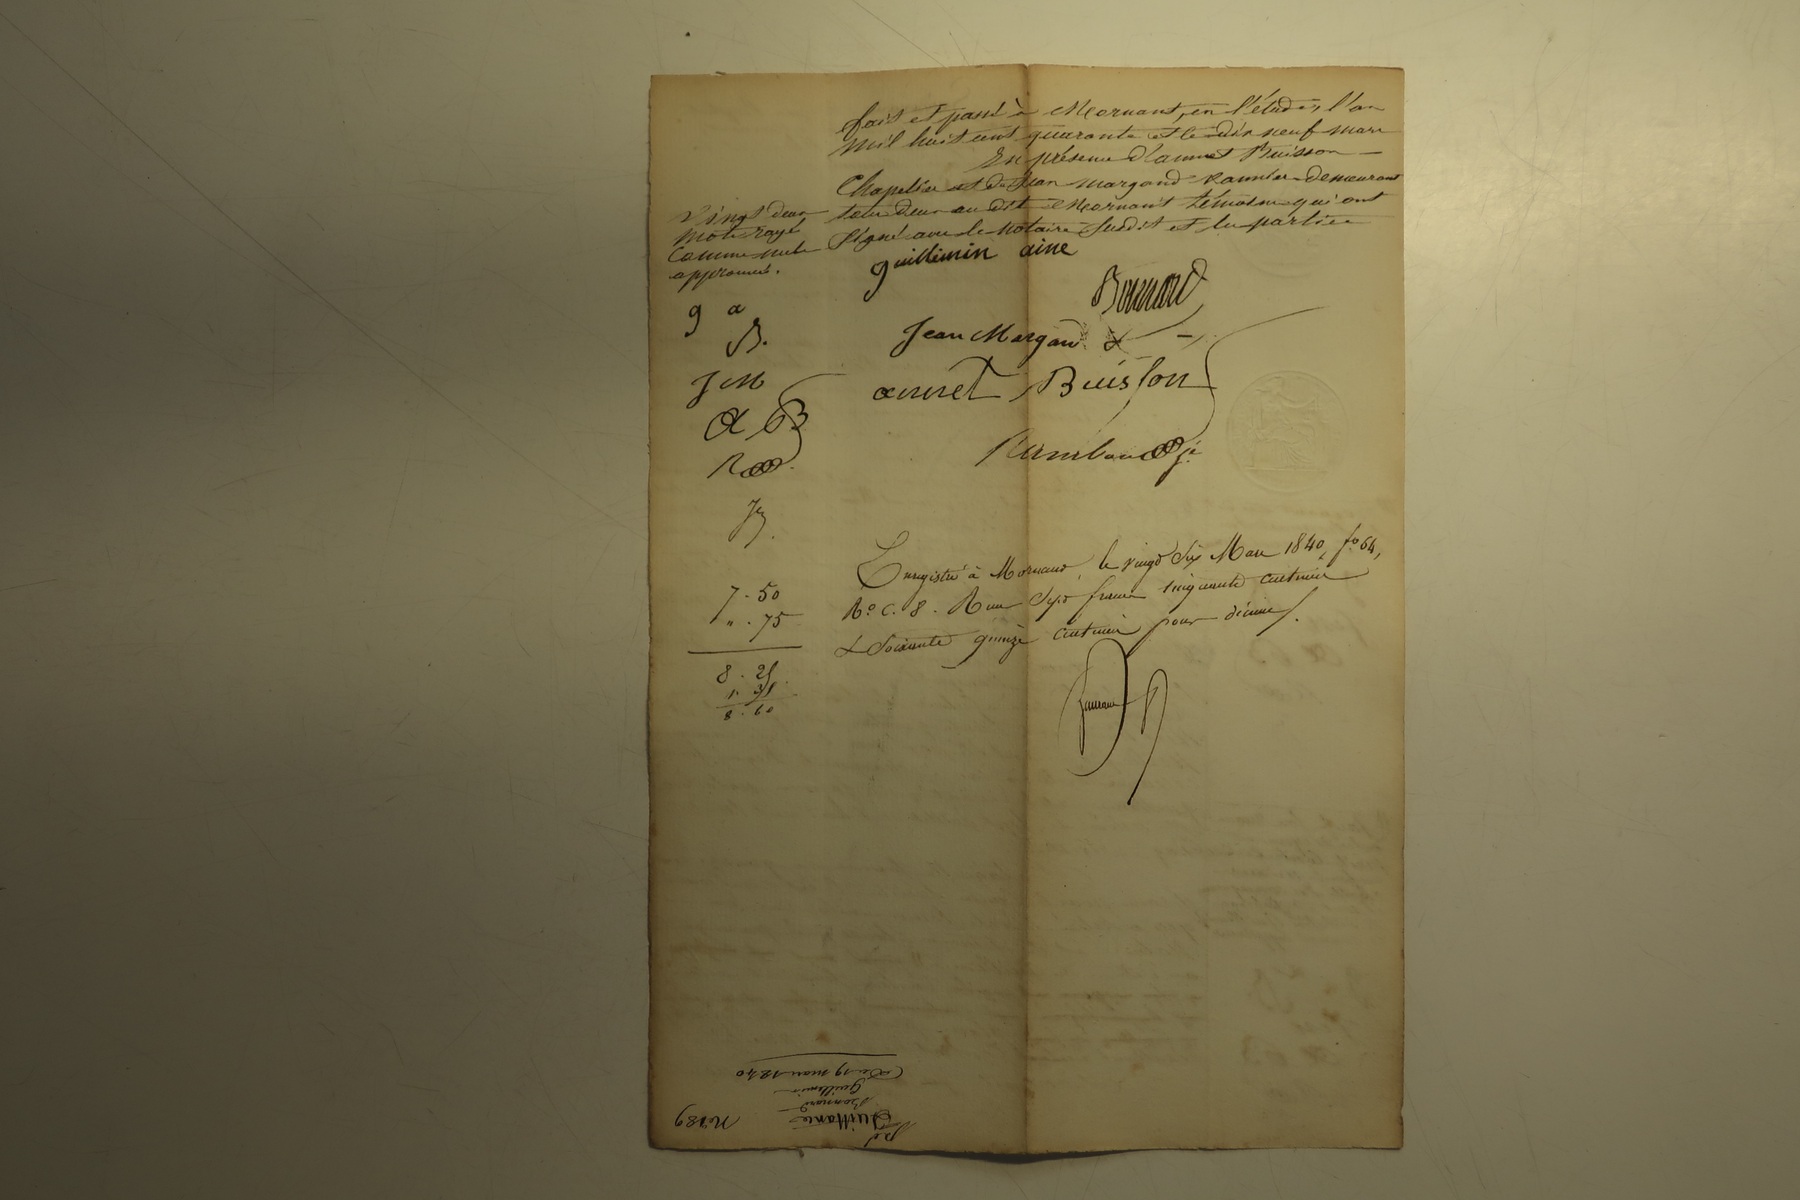 fait et passé à Mornant, en l'étude, l'an
mil huit cent quarante et le dix neuf mars
En présence d'annet Buisson
Chapelier et de Jean margand vannier demeurant
tous deux au dit Mornant témoins qui ont
signé avec le notaire susdit et les parties
Vingt deux
mots rayés
comme nuls
approuvés.
guillemin ainé
Bonnard
Jean Margand
annet Buisson
Rambaud
g a
B.
J M
A B
R
7 - 50
" - 75
8 - 25
8 - 60
Enregistré à Mornant, le vingt six Mars 1840, fo 64,
Ro C. 8. Reçu Sept francs cinquante centimes
& Soixante quinze centimes pour décime.
No 189
Quittance
Bonnard
Guillemin
Du 19 mars 1840